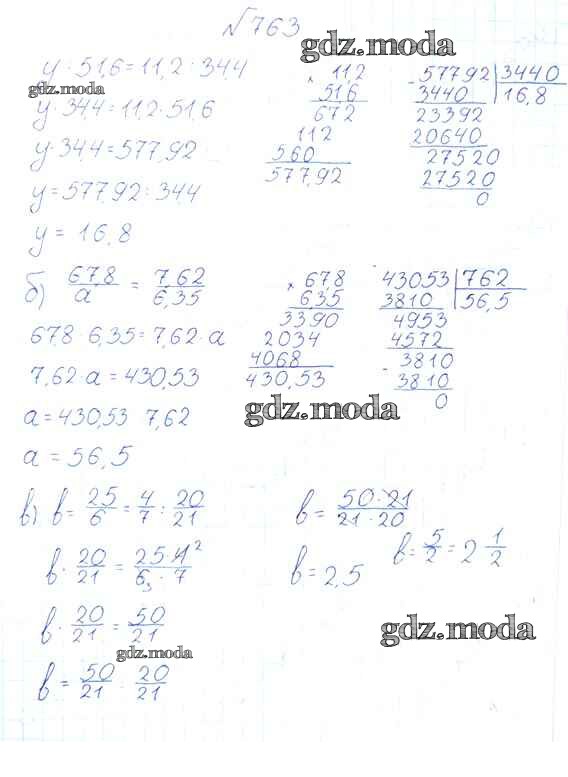 №763
gdz.moda
y : 51,6 = 11,2 : 34,4
gdz.moda
y · 34,4 = 11,2 · 51,6
y · 34,4 = 577,92
y = 577,92 : 34,4
y = 16,8
× 11,2
51,6
672
112
560
577,92
- 57792 | 3440
3440 | 16,8
23392
20640
27520
27520
0
б) 67,8/a = 7,62/6,35
67,8 · 6,35 = 7,62 · a
7,62 · a = 430,53
a = 430,53 7,62
a = 56,5
× 67,8
6,35
3390
2034
4068
430,53
43053 | 762
3810 | 56,5
4953
4572
- 3810
3810
0
gdz.moda
в) b = 25/6 = 4/7 : 20/21
b · 20/21 = 25·4²/6₃ · 7
b · 20/21 = 50/21
gdz.moda
b = 50/21 : 20/21
b = 50·21/21·20
b = 5/2 = 2 1/2
b = 2,5
gdz.moda